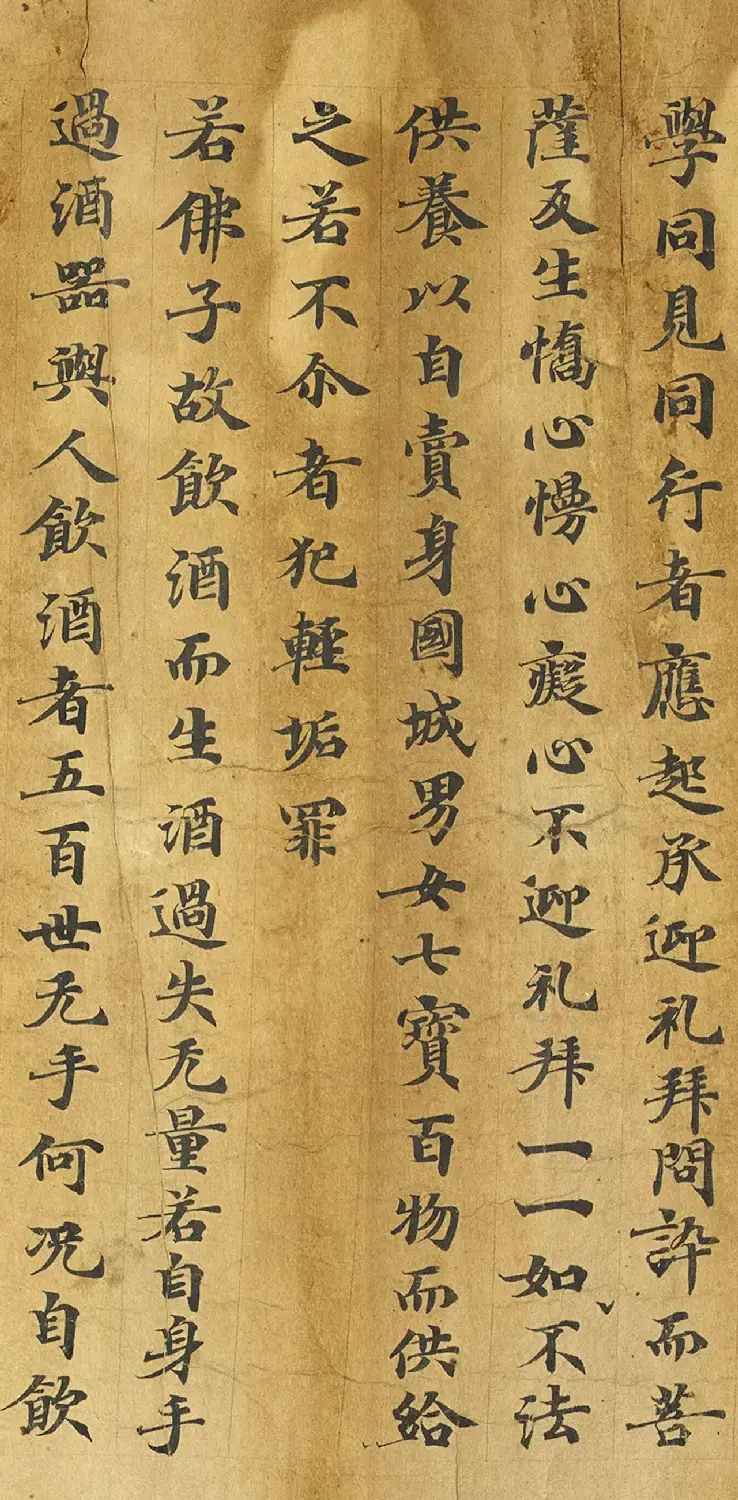 學同見同行者應起承迎礼拜問訊而菩
薩反生憍心慢心癡心不迎礼拜一一如不法
供養以自賣身國城男女七寶百物而供給
之若不尒者犯輕垢罪
若佛子故飲酒而生酒過失无量若自身手
過酒器與人飲酒者五百世无手何况自飲